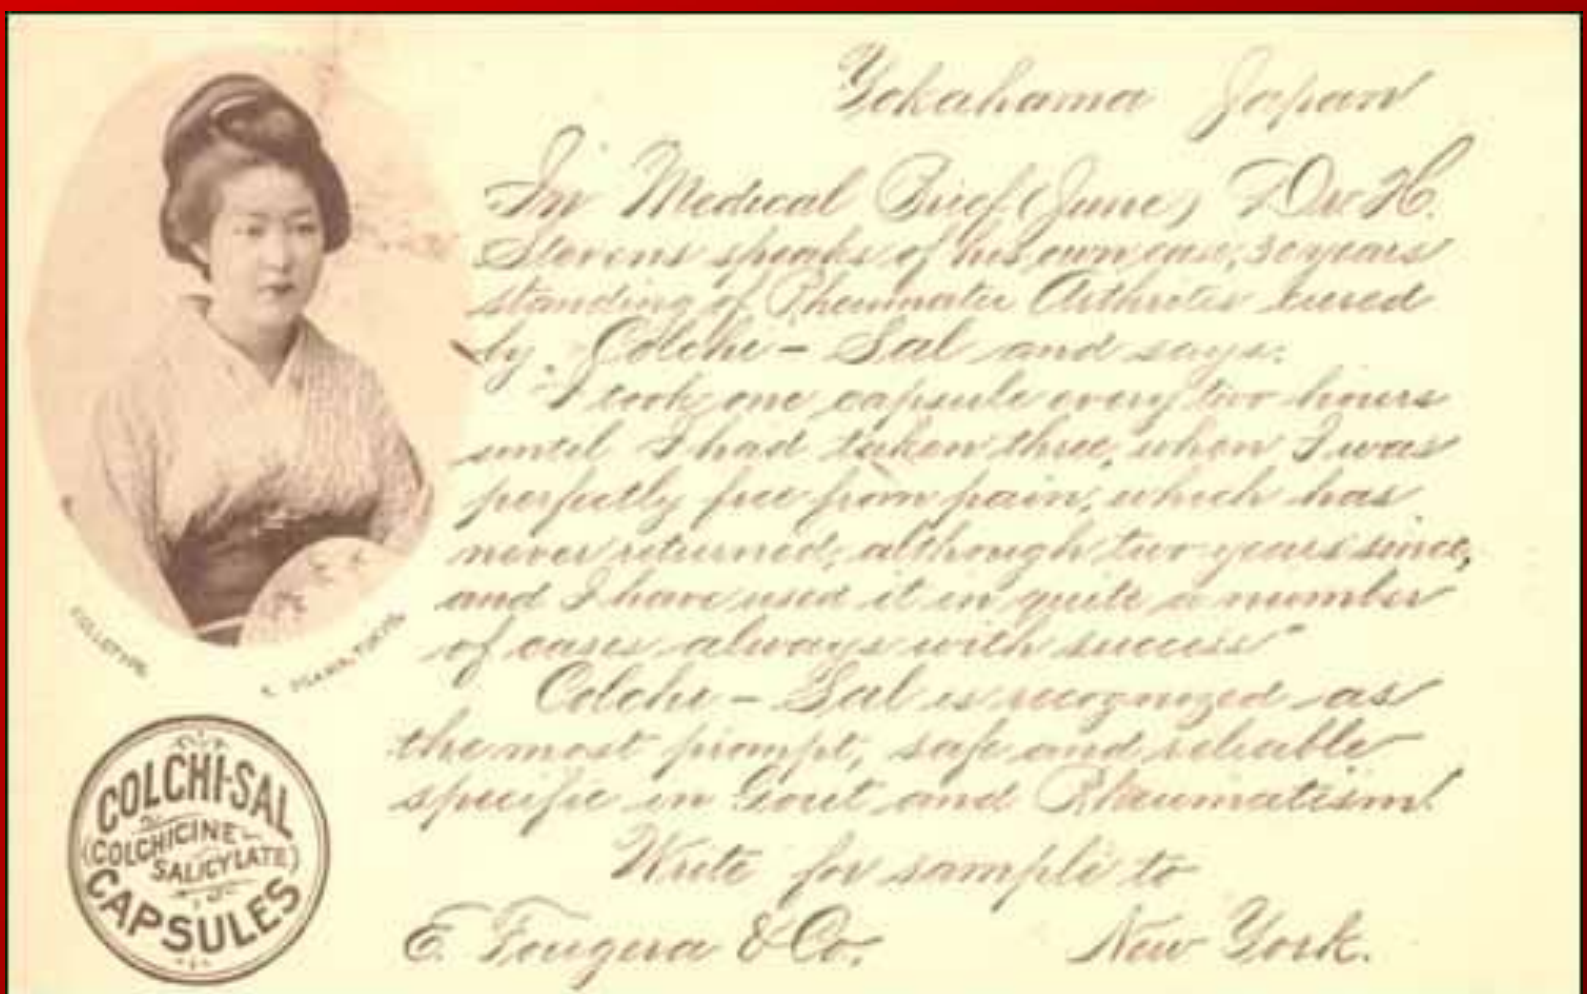 Yokahama Japan
In Medical Brief (June) Dr. H.
Stevens speaks of his own case, 30 years
standing of Rheumatic Arthritis cured
by Colchi-Sal and says:
"I took one capsule every two hours
until I had taken three, when I was
perfectly free from pain, which has
never returned, although two years since,
and I have used it in quite a number
of cases always with success"
Colchi-Sal is recognized as
the most prompt, safe and reliable
specific in Gout and Rheumatism.
Write for sample to
E. Fougera & Co. New York.
COLLOTYPE
OGAWA, TOKYO.
COLCHI-SAL
(COLCHICINE
SALICYLATE)
CAPSULES